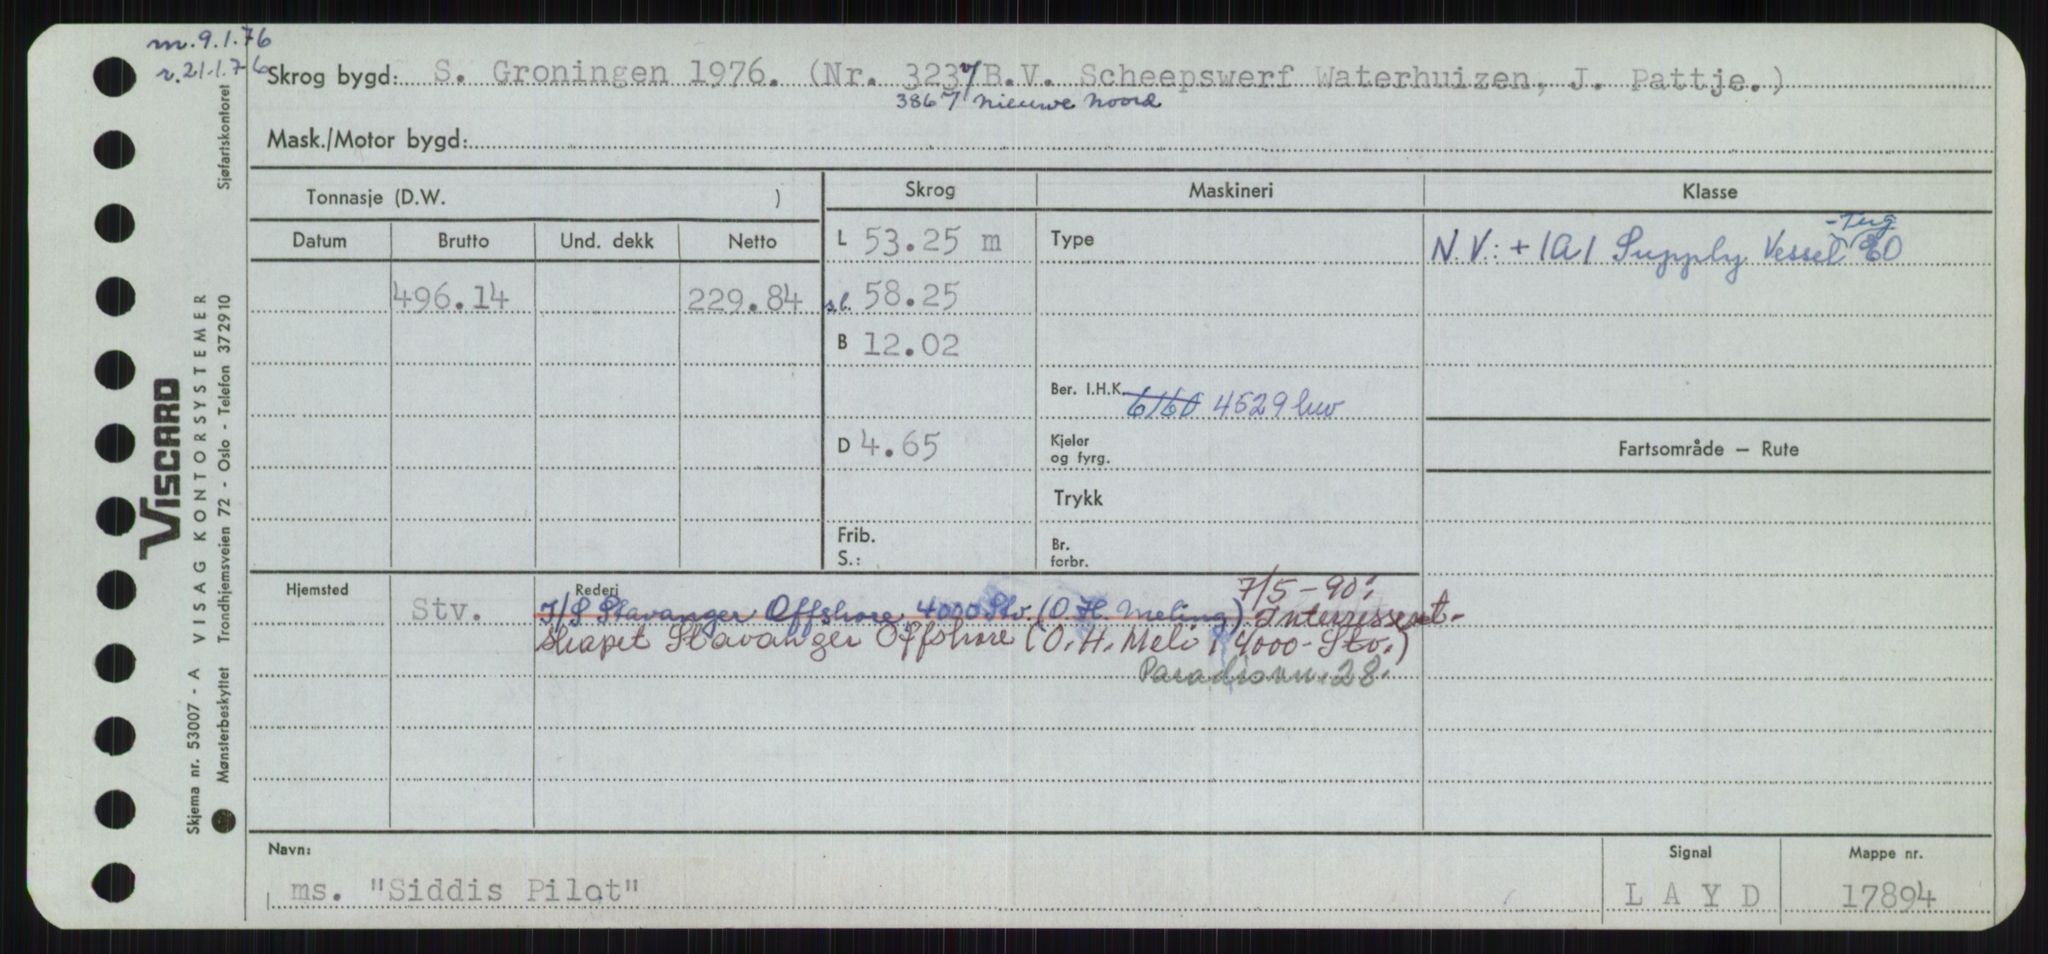 m. 9.1.76
r. 21.1.76
Skrog bygd: S. Groningen 1976. (Nr. 323 B.V. Scheepswerf Waterhuizen, J. Pattje.)
386 nieuwe noord
Mask./Motor bygd:
Tonnasje (D.W. ) Skrog Maskineri Klasse
Datum Brutto Und. dekk Netto L 53.25 m Type N.V.: + 1A1 Supply Vessel E0
- Tug
496.14 229.84 s.l. 58.25
B 12.02
Ber. I.H.K. 6160 4529 hw
D 4.65 Kjeler og fyrg. Fartsområde — Rute
Trykk
Frib. S.: Br. forbr.
Hjemsted Rederi 7/5-90:
Stv. I/S Stavanger Offshore, 4000 Stv. (O.H. Meling). Interressent-
skapet Stavanger Offshore (O.H. Meli , 4000-Stv.)
28.
Navn: Signal Mappe nr.
ms. "Siddis Pilot" L A Y D 17894
VISCARD
Skjema nr. 53007 - A VISAG KONTORSYSTEMER
Mønsterbeskyttet Trondhjemsveien 72 - Oslo - Telefon 37 29 10 Sjøfartskontoret